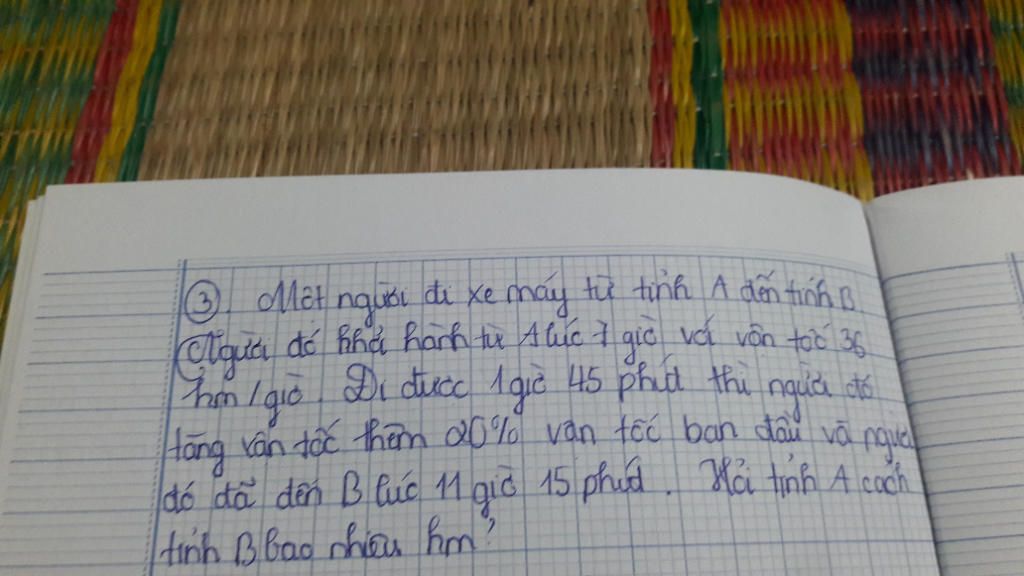 ③. Một người đi xe máy từ tỉnh A đến tỉnh B.
Người đó khởi hành từ A lúc 7 giờ với vận tốc 36
km/giờ. Đi được 1 giờ 45 phút thì người đó
tăng vận tốc thêm 20% vận tốc ban đầu và người
đó đã đến B lúc 11 giờ 15 phút. Hỏi tỉnh A cách
tỉnh B bao nhiêu km?